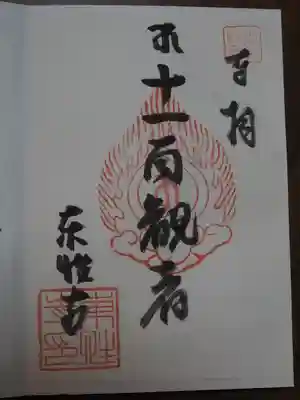 奉拝
十一面観音
東性寺